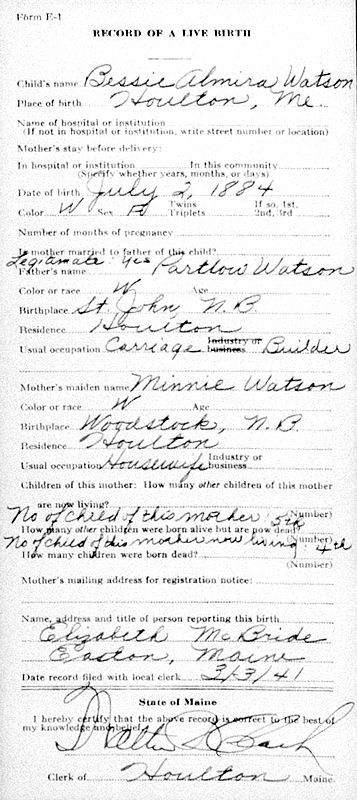 Form E-1
RECORD OF A LIVE BIRTH
Child's name Bessie Almira Watson
Place of birth Houlton, Me.
Name of hospital or institution
(If not in hospital or institution, write street number or location)
Mother's stay before delivery:
In hospital or institution In this community
(Specify whether years, months, or days)
Date of birth July 2, 1884
Color W Sex F Twins Triplets If so, 1st. 2nd, 3rd
Number of months of pregnancy
Is mother married to father of this child?
Legitamate: yes
Father's name Partlow Watson
Color or race W Age
Birthplace St. John, N. B.
Residence Houlton
Usual occupation Carriage Industry or business Builder
Mother's maiden name Minnie Watson
Color or race W Age
Birthplace Woodstock, N. B.
Residence Houlton
Usual occupation Housewife Industry or business
Children of this mother: How many other children of this mother
are now living?
(Number)
No of child of this mother: 5th
How many other children were born alive but are now dead?
(Number)
No of child of this mother now living: 4th
How many children were born dead?
(Number)
Mother's mailing address for registration notice:
Name, address and title of person reporting this birth
Elizabeth McBride
Easton, Maine
Date record filed with local clerk 2/3/41
State of Maine
I hereby certify that the above record is correct to the best of
my knowledge and belief.
Clerk of Houlton Maine.